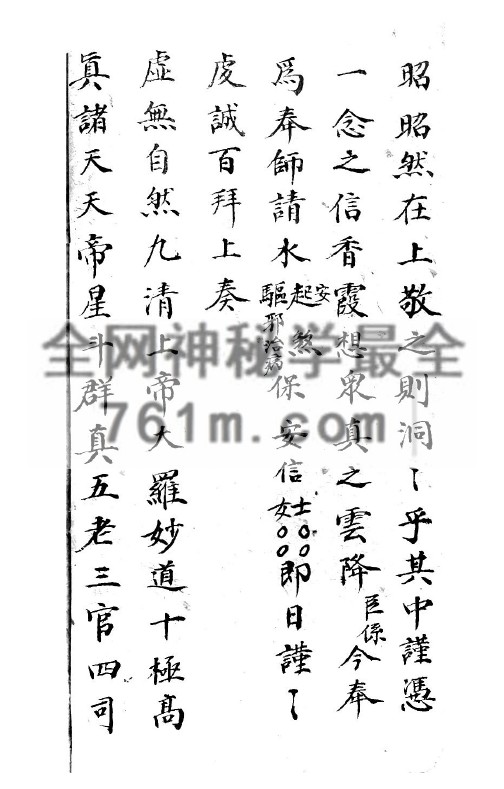 昭昭然在上敬之則洞〻乎其中謹憑
一念之信香霞想衆真之雲降臣係今奉
爲奉師請水安起煞驅邪治病保安信士〇〇女〇〇即日謹〻
虔誠百拜上奏
虛無自然九清上帝大羅妙道十極高
眞諸天天帝星斗群真五老三官四司
全网神秘学最全
761m.com